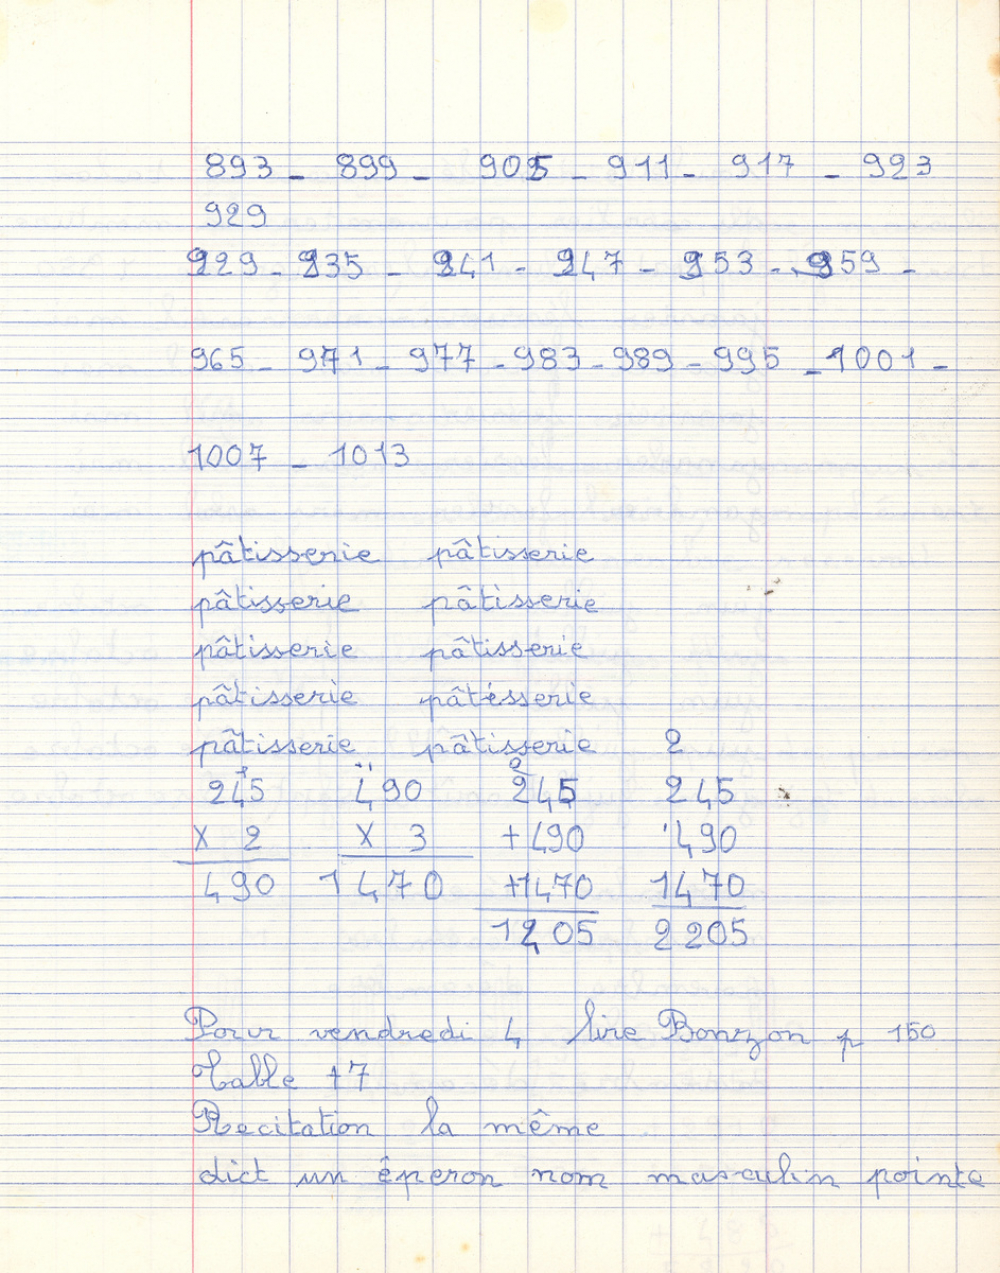 893 - 899 - 905 - 911 - 917 - 923
929
929 - 935 - 941 - 947 - 953 - 959 -
965 - 971 - 977 - 983 - 989 - 995 - 1001 -
1007 - 1013
pâtisserie pâtisserie
pâtisserie pâtisserie
pâtisserie pâtisserie
pâtisserie pâtésserie
pâtisserie pâtisserie 2
245 490 245 245
X 2 X 3 +490 490
490 1470 +1470 1470
1205 2205
Pour vendredi 4 lire Bonzon p 150
Table +7
Recitation la même
dict un êperon nom masculin pointe